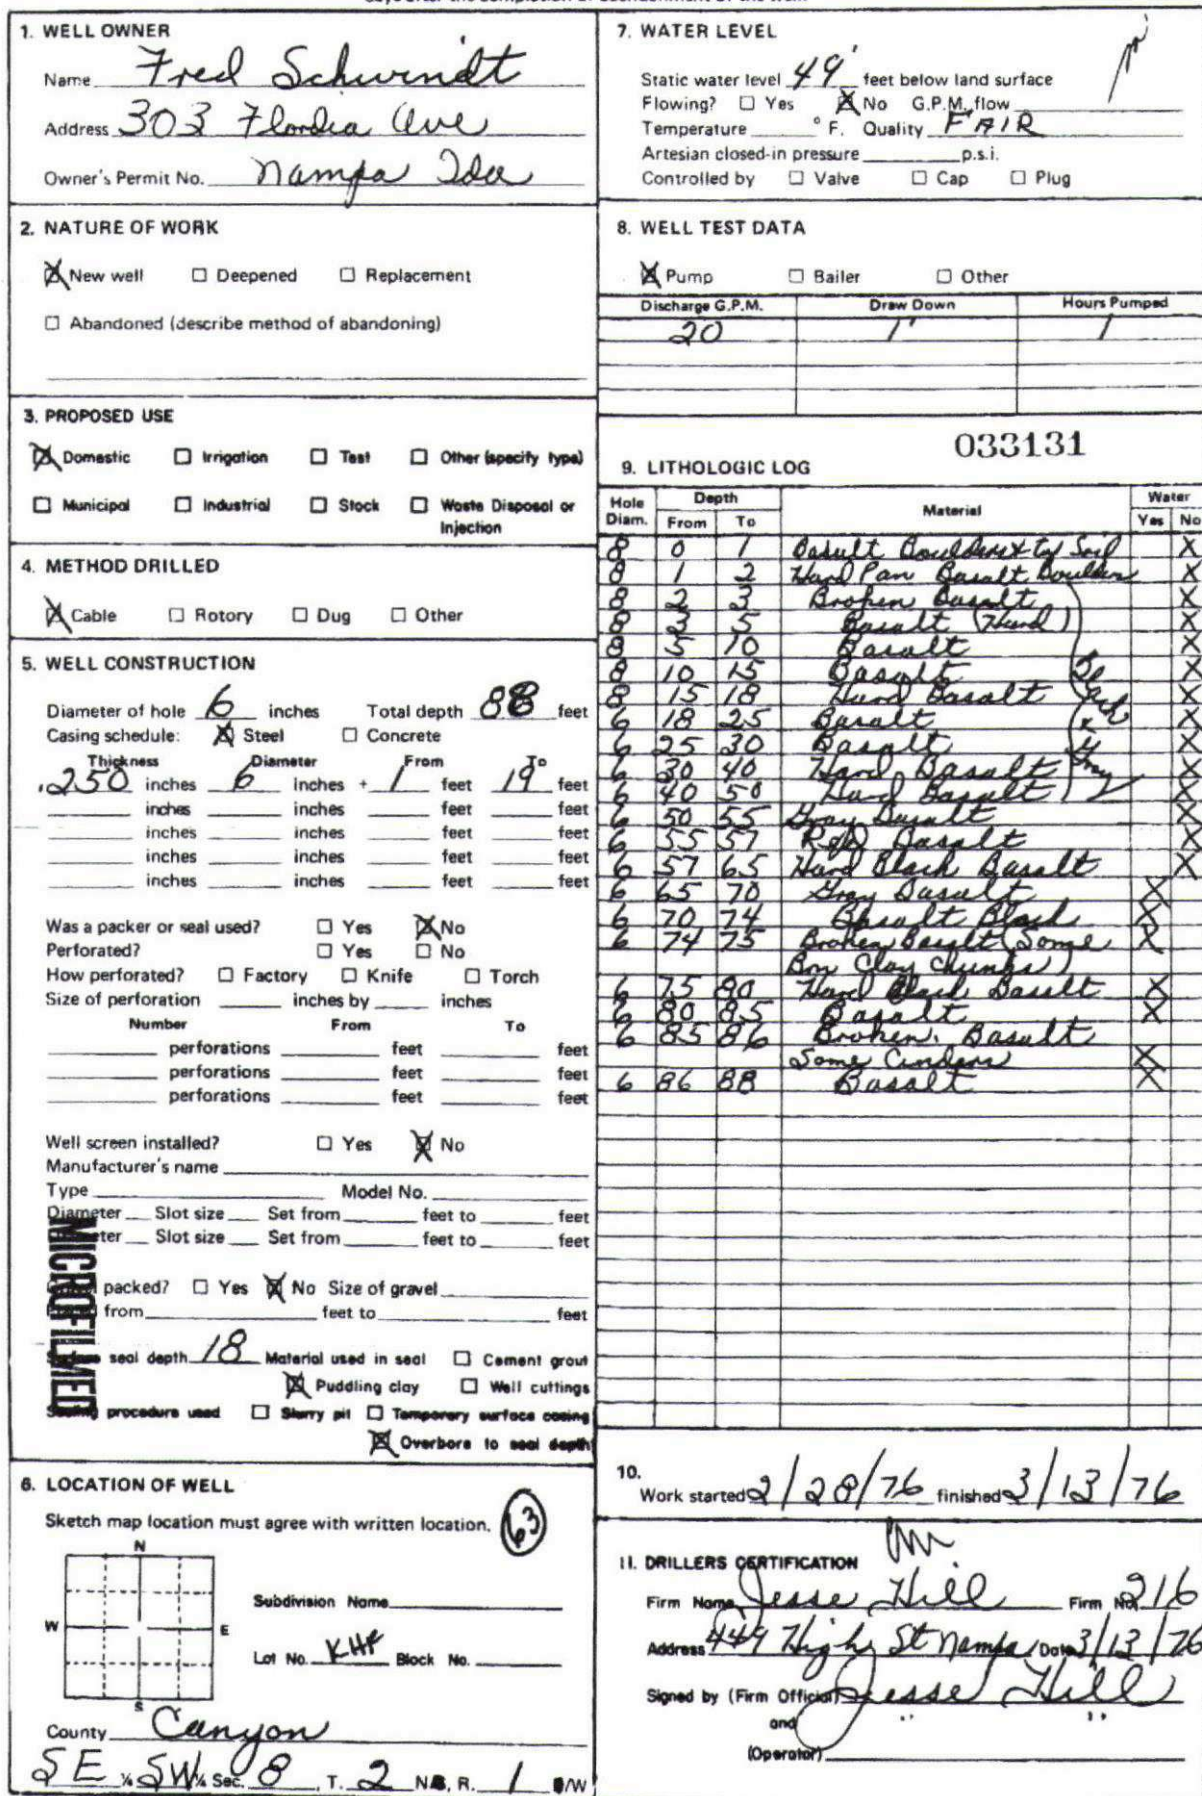 1. WELL OWNER
Name Fred Schwindt
Address 303 Flordia Ave
Owner's Permit No. Nampa Ida
2. NATURE OF WORK
☒ New well ☐ Deepened ☐ Replacement
☐ Abandoned (describe method of abandoning)
3. PROPOSED USE
☒ Domestic ☐ Irrigation ☐ Test ☐ Other (specify type)
☐ Municipal ☐ Industrial ☐ Stock ☐ Waste Disposal or
Injection
4. METHOD DRILLED
☒ Cable ☐ Rotory ☐ Dug ☐ Other
5. WELL CONSTRUCTION
Diameter of hole 6 inches Total depth 88 feet
Casing schedule: ☒ Steel ☐ Concrete
Thickness Diameter From To
.250 inches 6 inches + 1 feet 19 feet
inches inches feet feet
inches inches feet feet
inches inches feet feet
inches inches feet feet
Was a packer or seal used? ☐ Yes ☒ No
Perforated? ☐ Yes ☐ No
How perforated? ☐ Factory ☐ Knife ☐ Torch
Size of perforation inches by inches
Number From To
perforations feet feet
perforations feet feet
perforations feet feet
Well screen installed? ☐ Yes ☒ No
Manufacturer's name
Type Model No.
Diameter Slot size Set from feet to feet
Slot size Set from feet to feet
packed? ☐ Yes ☒ No Size of gravel
from feet to feet
seal depth 18 Material used in seal ☐ Cement grout
☒ Puddling clay ☐ Well cuttings
procedure used ☐ Slurry pit ☐ Temporary surface casing
☒ Overbore to seal depth
MICROFILMED
6. LOCATION OF WELL
Sketch map location must agree with written location. 63
N
W E
S
Subdivision Name
Lot No. Block No.
County Canyon
SE ¼ SW ¼ Sec. 8, T. 2 N, R. 1 /W
7. WATER LEVEL
Static water level 49' feet below land surface
Flowing? ☐ Yes ☒ No G.P.M. flow
Temperature ° F. Quality FAIR
Artesian closed-in pressure p.s.i.
Controlled by ☐ Valve ☐ Cap ☐ Plug
8. WELL TEST DATA
☒ Pump ☐ Bailer ☐ Other
Discharge G.P.M. Draw Down Hours Pumped
20 1' 1
033131
9. LITHOLOGIC LOG
Hole Diam. Depth From To Material Water Yes No
8 0 1 Basult Boulders + top Soil X
8 1 2 Hard Pan Basalt Boulders X
8 2 3 Broken Basalt X
8 3 5 Basalt (Hard) X
8 5 10 Basalt X
8 10 15 Basalt X
8 15 18 Hard Basalt X
6 18 25 Basalt X
6 25 30 Basalt X
6 30 40 Hard Basalt Gray X
6 40 50 Hard Basalt X
6 50 55 Gray Basalt X
6 55 57 Red Basalt X
6 57 65 Hard Black Basalt X
6 65 70 Gray Basalt X
6 70 74 Basalt Black X
6 74 75 Broken Basalt (Some X
Brn Clay Chunks)
6 75 80 Hard Black Basalt X
6 80 85 Basalt X
6 85 86 Broken Basalt
Some Cinders X
6 86 88 Basalt X
10.
Work started 2/28/76 finished 3/13/76
11. DRILLERS CERTIFICATION
Firm Name Jesse Hill Firm No. 216
Address 449 High St Nampa Date 3/13/76
Signed by (Firm Official) Jesse Hill
and
(Operator) " "